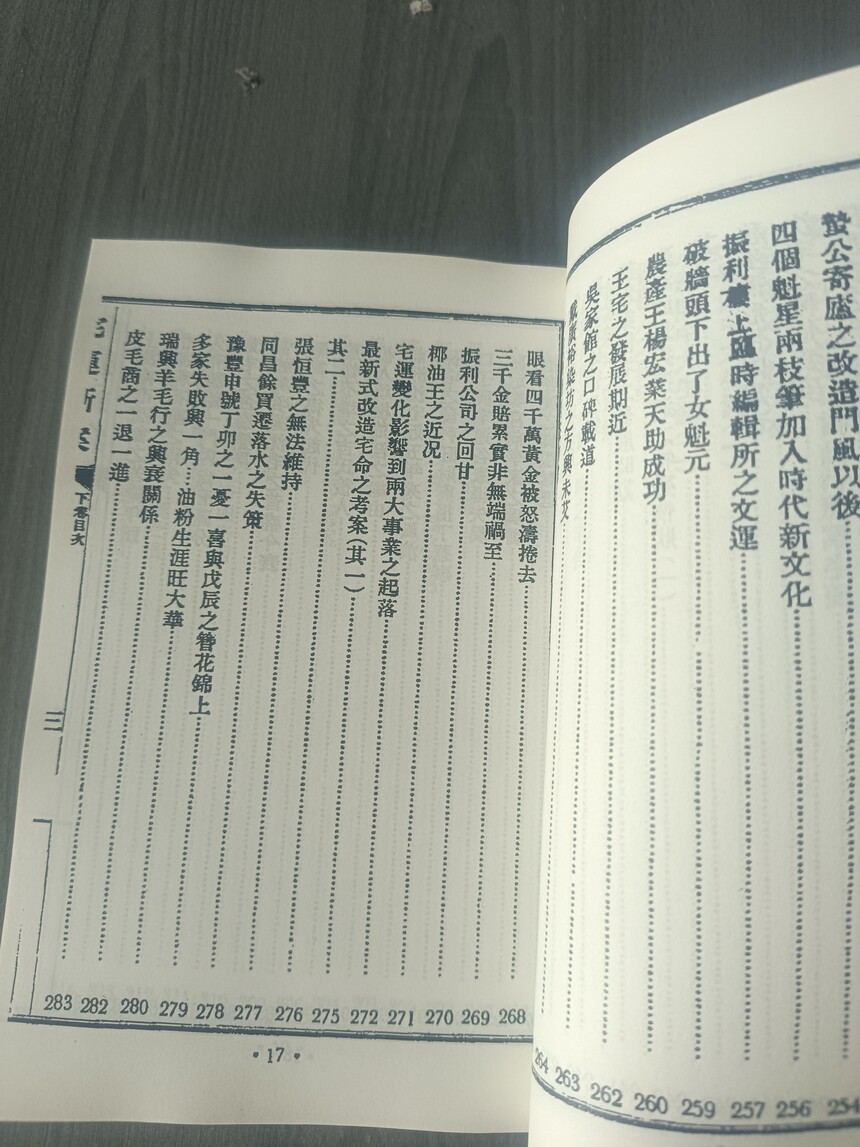 蟄公寄廬之改造門風以後……254
四個魁星兩枝筆加入時代新文化……256
振利樓上臨時編輯所之文運……257
破牆頭下出了女魁元……259
農產王楊宏業天助成功……260
王宅之發展期近……262
吳家館之口碑載道……263
染坊之方興未艾……264
眼看四千萬黃金被怒濤捲去……268
三千金賠累實非無端禍至……269
振利公司之回甘……270
椰油王之近況……271
宅運變化影響到兩大事業之起落……272
最新式改造宅命之考案(其一)……275
其二……276
張恒豐之無法維持……277
同昌餘買遷落水之失策……278
豫豐申號丁卯之一憂一喜與戊辰之簪花錦上……279
多家失敗興一角…油粉生涯旺大華……280
瑞興羊毛行之興衰關係……282
皮毛商之一退一進……283
下卷目次
三
•17•